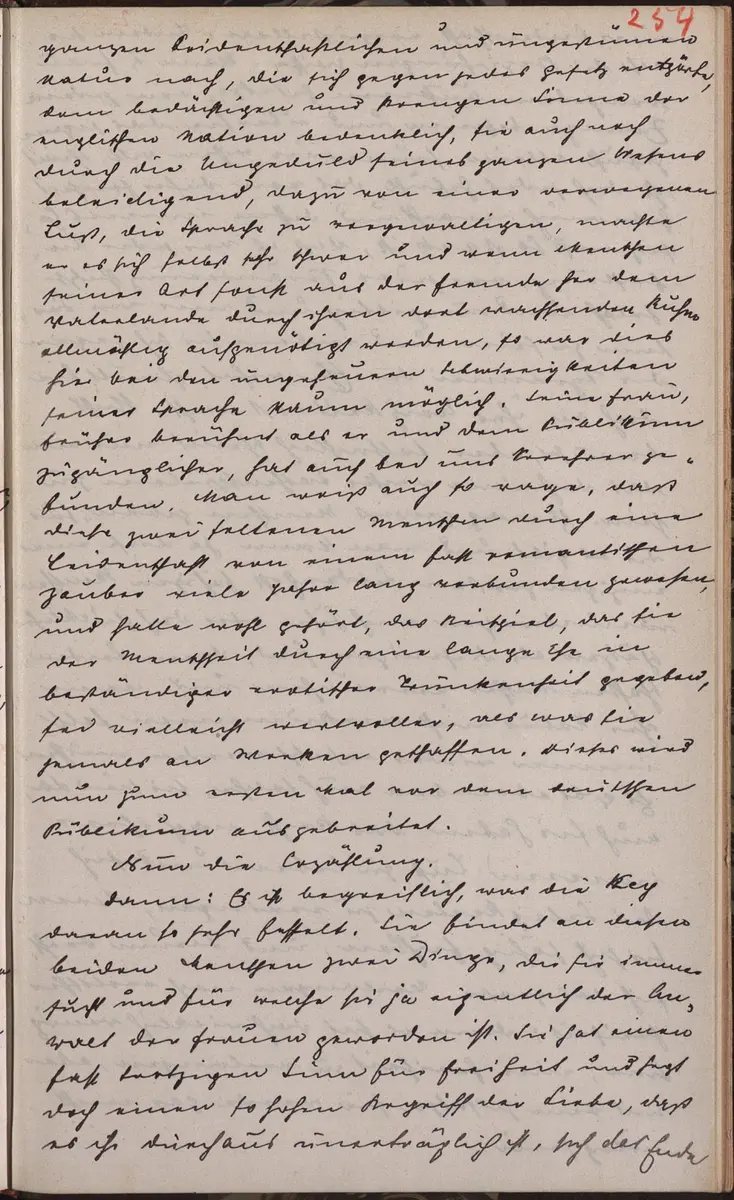 254
ganzen leidenschaftlichen und ungestümen
Natur nach, die sich gegen jedes Gesetz empörte,
dem bedächtigen und strengen Sinne der
englischen Nation bedenklich, sie auch noch
durch die Ungeduld seines ganzen Wesens
beleidigend, dazu von einer verwegenen
Lust, die Sprache zu vergewaltigen, machte
er es sich selbst sehr schwer und wenn Menschen
seiner Art sonst aus der Fremde her dem
Vaterlande durch ihren dort wachsenden Ruhm
allmählig aufgenötigt werden, so war dies
hier bei den ungeheuern Schwierigkeiten
seiner Sprache kaum möglich. Seine Frau,
früher berühmt als er und dem Publikum
zugänglicher, hat auch bei uns Verehrer ge-
funden. Man weiß auch so vage, daß
diese zwei seltenen Menschen durch eine
Leidenschaft von einem fast romantischen
Zauber viele Jahre lang verbunden gewesen,
und hatte wohl gehört, das Beispiel, das sie
der Menschheit durch eine lange Ehe in
beständiger erotischer Trunkenheit gegeben,
sei vielleicht wertvoller, als was sie
jemals an Werken geschaffen. Dieses wird
nun zum ersten Mal vor dem deutschen
Publikum ausgebreitet.
Nun die Erzählung.
Dann: Es ist begreiflich, was die Key
daran so sehr fesselt. Sie findet an diesen
beiden Menschen zwei Dinge, die sie immer
sucht und für welche sie ja eigentlich der An-
walt der Frauen geworden ist. Sie hat einen
fast trotzigen Sinn für Freiheit und hegt
doch einen so hohen Begriff der Liebe, daß
es ihr durchaus unerträglich ist, sich das Ende